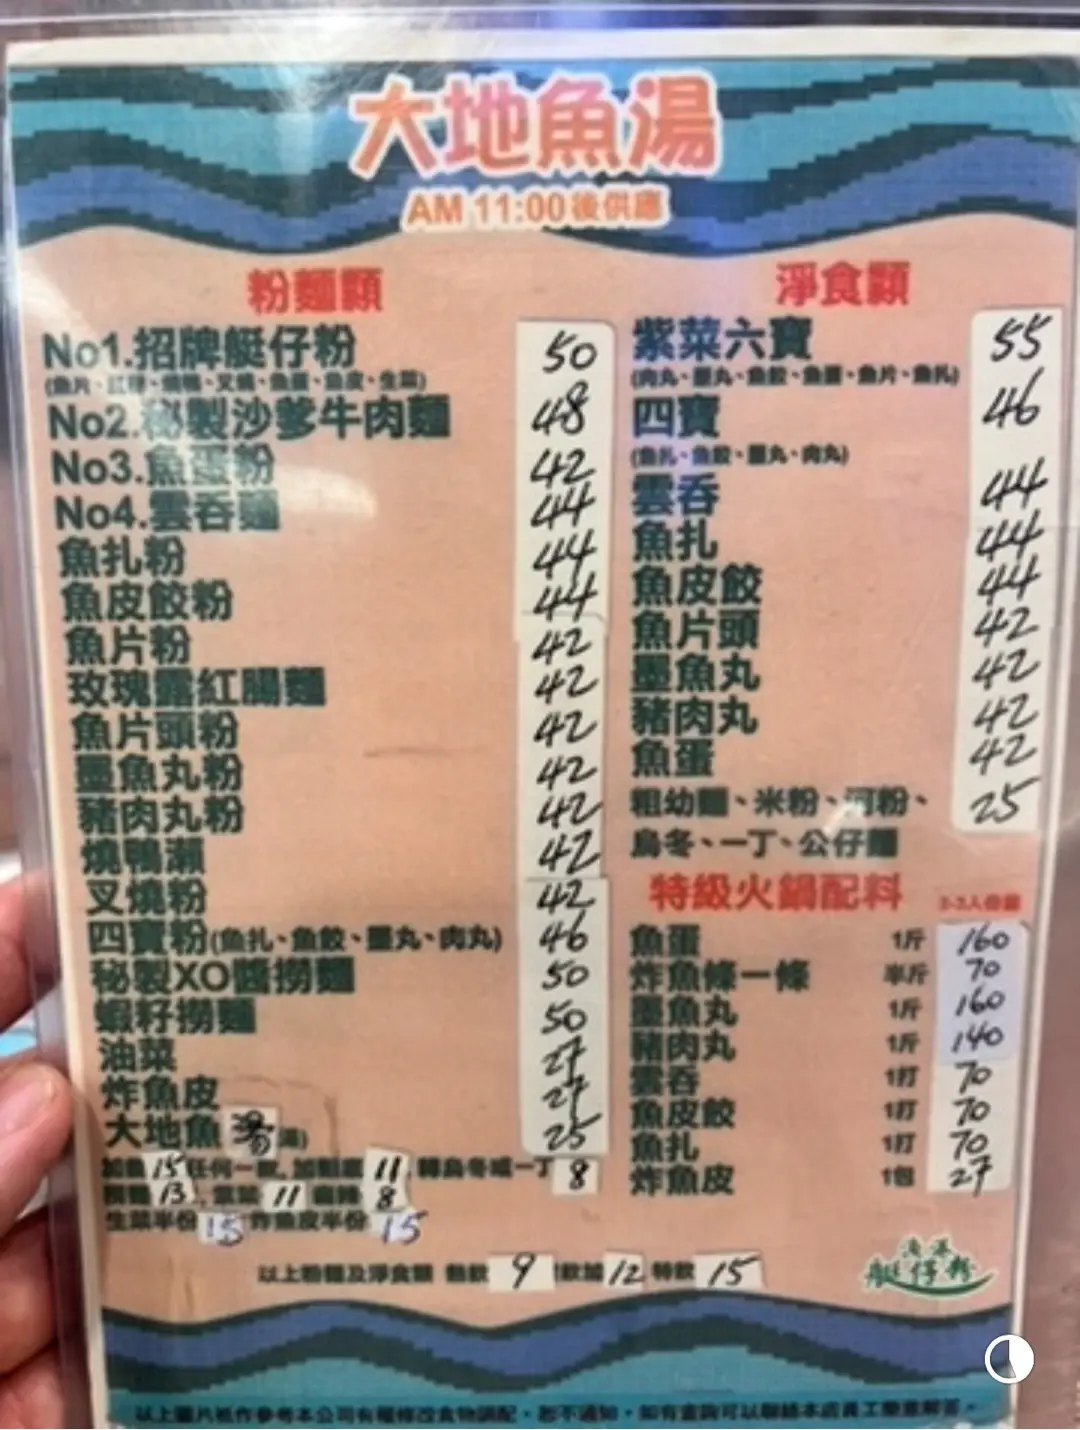 大地魚湯
AM 11:00後供應
粉麵類
No1.招牌艇仔粉 50
(魚片、紅腸、燒鴨、叉燒、魚蛋、魚皮、生菜)
No2.秘製沙爹牛肉麵 48
No3.魚蛋粉 42
No4.雲吞麵 44
魚扎粉 44
魚皮餃粉 44
魚片粉 42
玫瑰露紅腸麵 42
魚片頭粉 42
墨魚丸粉 42
豬肉丸粉 42
燒鴨瀨 42
叉燒粉 42
四寶粉(魚扎、魚餃、墨丸、肉丸) 46
秘製XO醬撈麵 50
蝦籽撈麵 50
油菜 27
炸魚皮 27
大地魚湯 25
15任何一款, 11 轉烏冬或一丁 8
13 , 紫菜 11 8
生菜半份 15 炸魚皮半份 15
淨食類
紫菜六寶 55
(肉丸、墨丸、魚餃、魚蛋、魚片、魚扎)
四寶 46
(魚扎、魚餃、墨丸、肉丸)
雲吞 44
魚扎 44
魚皮餃 44
魚片頭 42
墨魚丸 42
豬肉丸 42
魚蛋 42
粗幼麵、米粉、河粉、 25
烏冬、一丁、公仔麵
特級火鍋配料
魚蛋 1斤 160
炸魚條一條 半斤 70
墨魚丸 1斤 160
豬肉丸 1斤 140
雲吞 1打 70
魚皮餃 1打 70
魚扎 1打 70
炸魚皮 1包 27
以上粉麵及淨食類 熱飲 9 飲加 12 特飲 15
艇仔粉
以上圖片祗作參考本公司有權修改食物調配，恕不通知，如有查詢可以聯絡本店員工樂意解答。